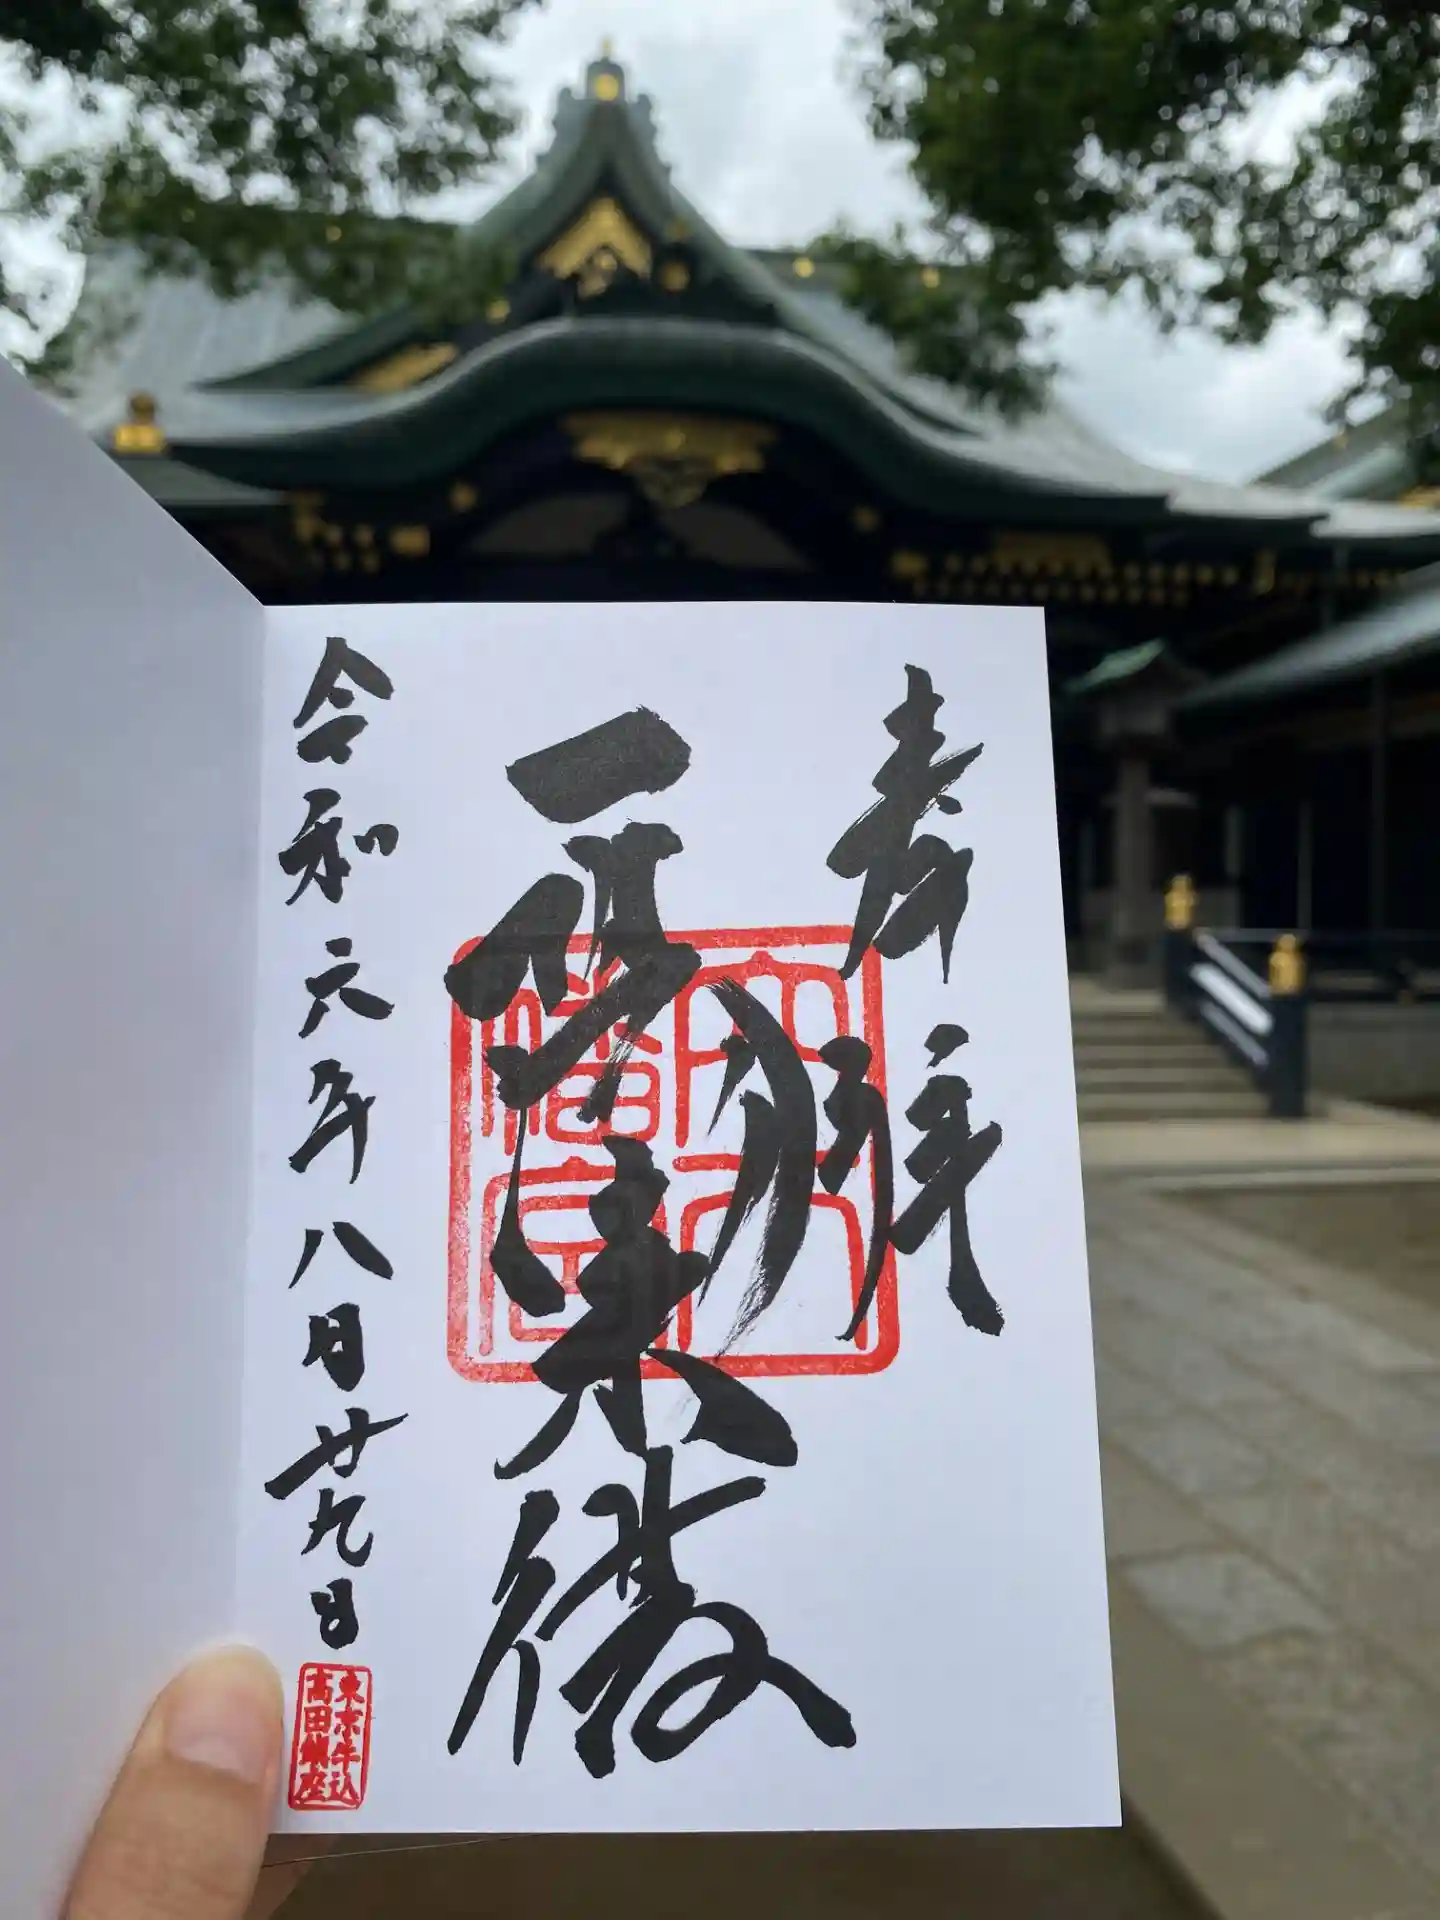 奉拝
一陽来復
穴八幡宮
令和六年八月廿九日
東京牛込
高田鎮座